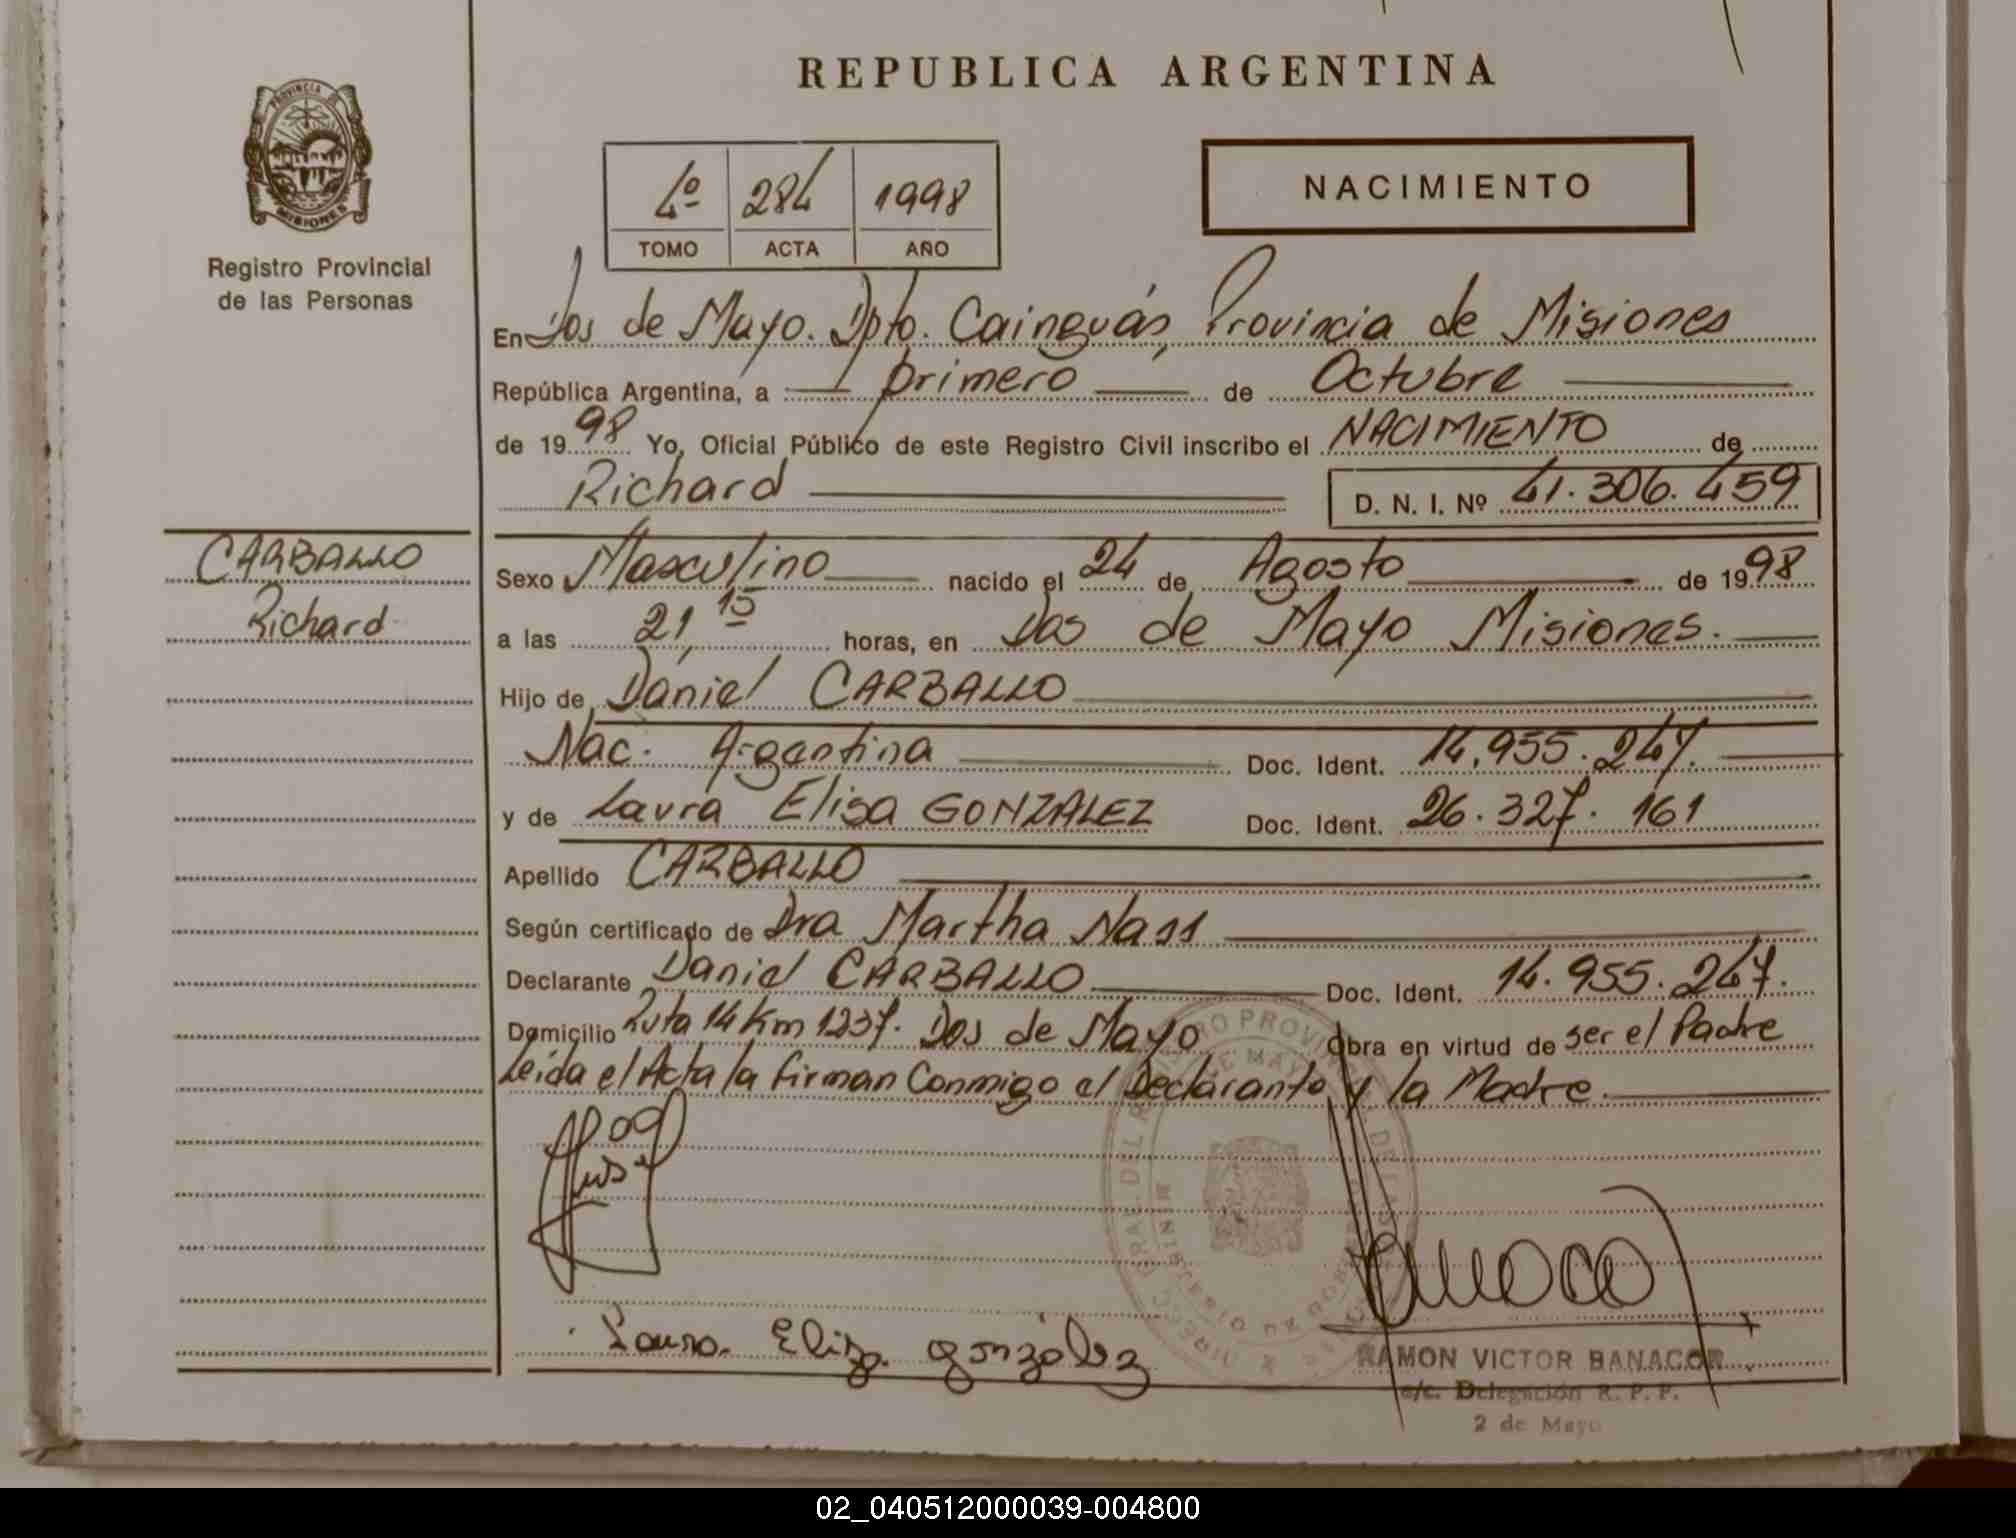 REPUBLICA ARGENTINA
PROVINCIA DE
MISIONES
Registro Provincial
de las Personas
4º 284 1998
TOMO ACTA AÑO
NACIMIENTO
En Dos de Mayo. Dpto. Cainguás, Provincia de Misiones
República Argentina, a primero de Octubre
de 1998 Yo, Oficial Público de este Registro Civil inscribo el NACIMIENTO de
Richard D. N. I. Nº 41.306.459
CARBALLO
Richard
Sexo Masculino nacido el 24 de Agosto de 1998
a las 21,15 horas, en Dos de Mayo Misiones.
Hijo de Daniel CARBALLO
Nac. Argentina Doc. Ident. 14.955.247.
y de Laura Elisa GONZALEZ Doc. Ident. 26.327.161
Apellido CARBALLO
Según certificado de Dra Martha Nass
Declarante Daniel CARBALLO Doc. Ident. 14.955.247.
Domicilio Ruta 14 Km 1237. Dos de Mayo Obra en virtud de ser el Padre
Leída el Acta la firman Conmigo el Declarante y la Madre.
Laura Elisa gonzález
RAMON VICTOR BANACOR
e/c. Delegación R. P. P.
2 de Mayo
02_040512000039-004800